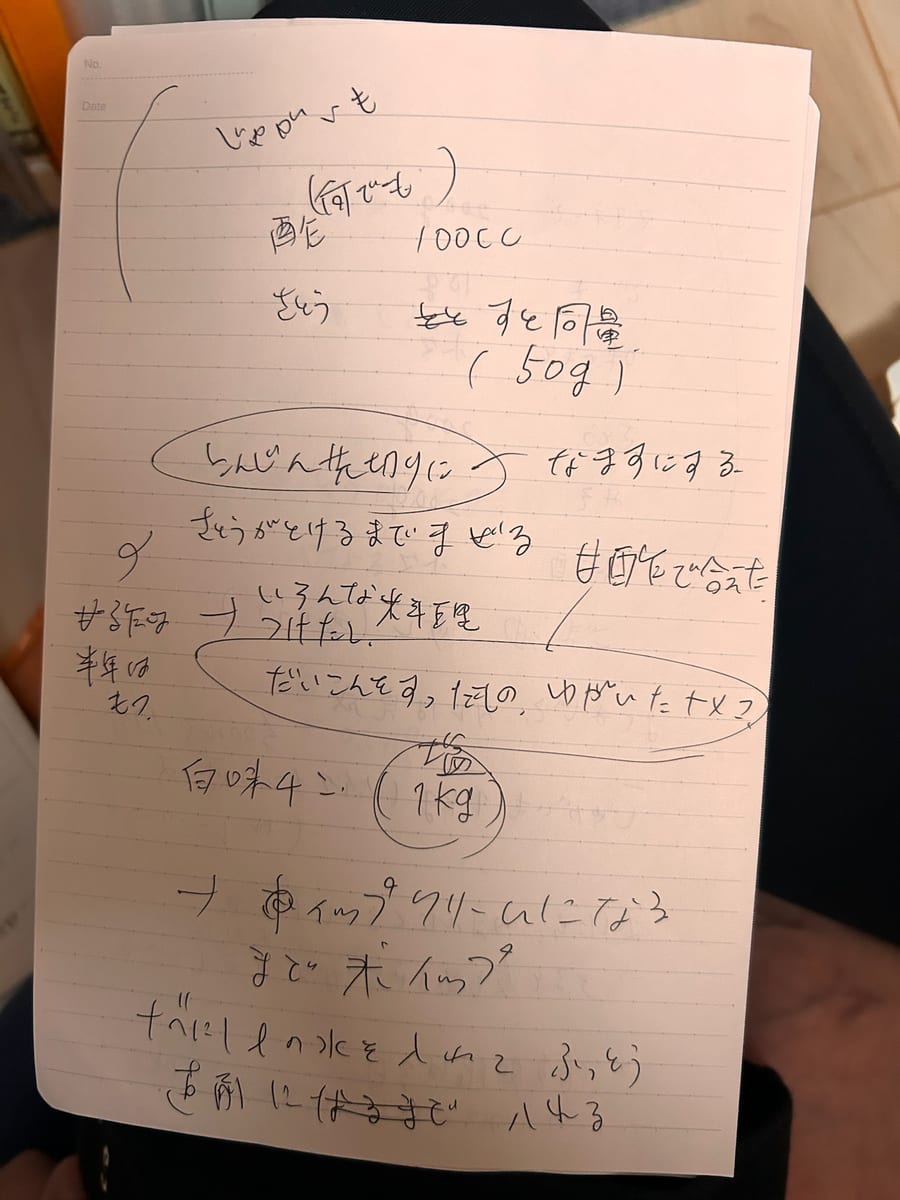 No.
Date
じゃがいも
(何でも)
酢 100cc
さとう すと同量.
(50g)
にんじん 千切りに なますにする
さとうがとけるまで まぜる
甘酢で合えた
甘酢は → いろんな料理
つけたし.
半年は
もつ.
だいこんをすったもの、ゆがいたナメコ
白味 4コ. 塩
(1kg)
→ ホイップクリームになる
まで ホイップ
ナベに1lの水を入れて ふっとう
直前に 入れる